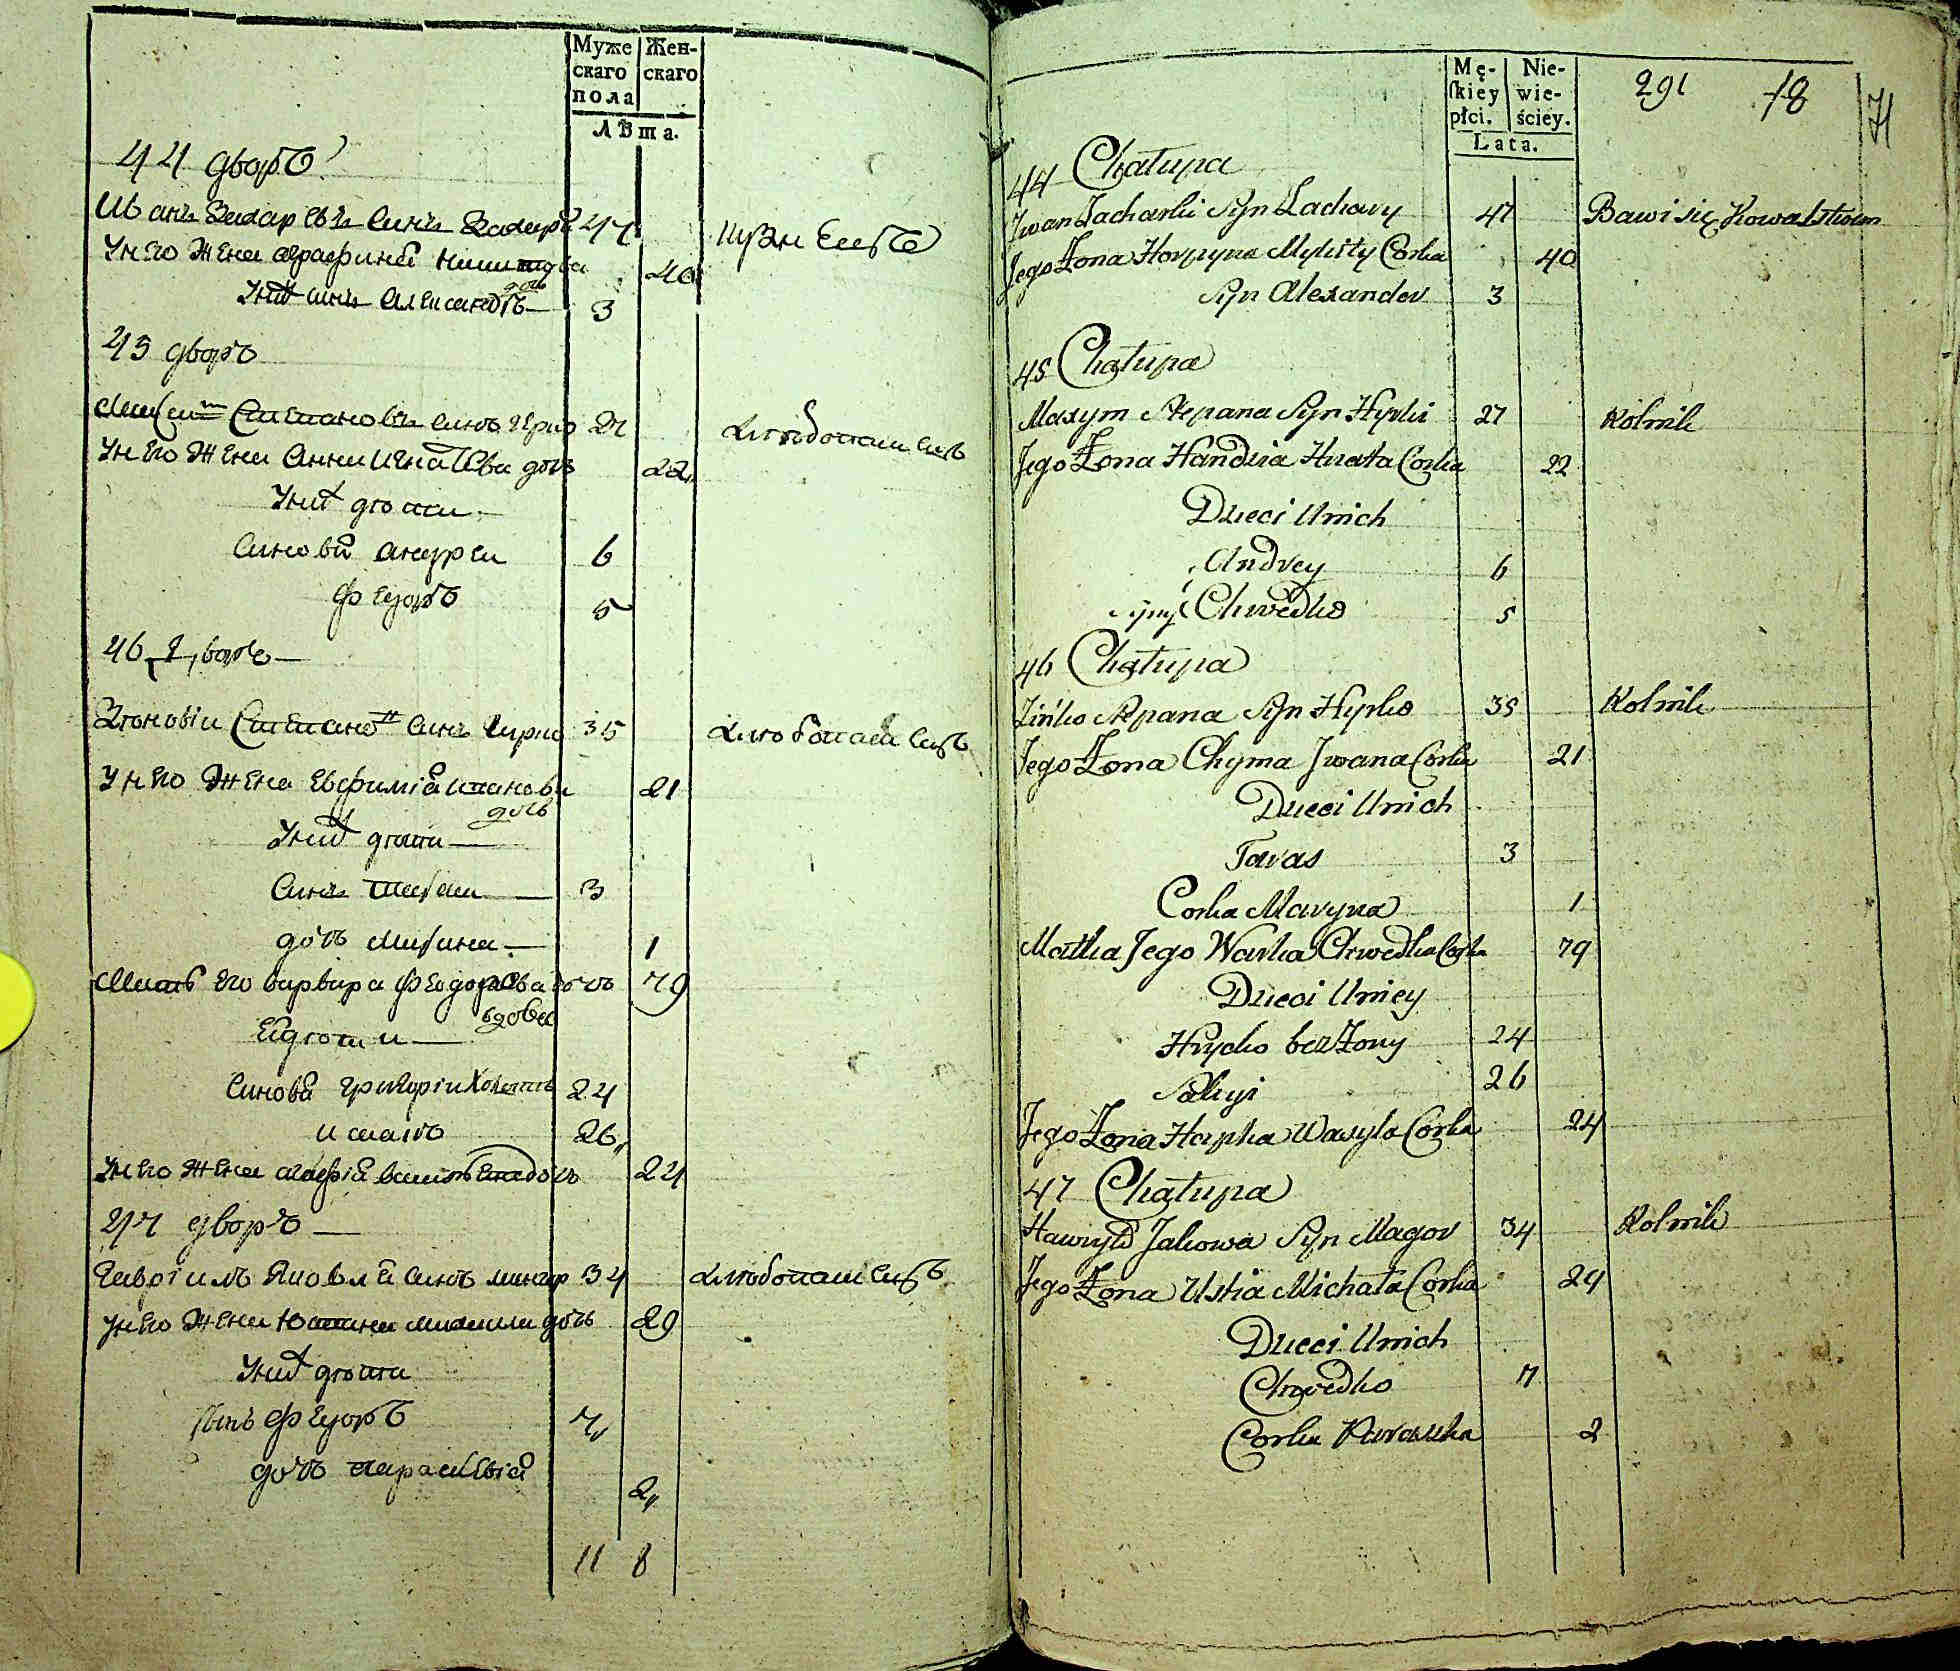 Муже
скаго
пола
Жен-
скаго
Лѣта.
44 дворъ
Иванъ Захаревъ синъ Захар 47
У него жена Аграфина Никитова 40
дочь
У них синъ Александръ 3
кузнецъ
45 дворъ
Максим Степановъ синъ Гирко 27
хлебопашецъ
У него жена Анна Игнатева дочь 22
У них дѣти
Синови Андреи 6
Федоръ 5
46 дворъ
Зѣновіи Степано синъ Гирко 35
хлебопашецъ
У него жена Евфиміа Иванова 21
дочь
У них дѣти
Синъ Тарас 3
дочь Марина 1
Мать его Варвара Федорова дочь 79
вдова
Ей дѣти
Синови Григоріи холостъ 24
Исаіе 26
У него жена Агафіа Василева дочь 24
47 дворъ
Гавріилъ Яковлв синъ Магер 34
хлебопашецъ
У него жена Юстина Михаила дочь 29
У них дѣти
Синъ Федоръ 7
дочь Параскевіа 2
11 8
Mę-
ſkiey
płci.
Nie-
wie-
ściey.
Lata.
291 78
71
44 Chałupa
Iwan Zacharki Syn Zachary 47 Bawi się Kowalstwem
Jego Żona Horpyna Mykity Corka 40
Syn Alexander 3
45 Chałupa
Maxym Stepana Syn Hyrki 27 Rolnik
Jego Żona Handzia Hnata Corka 22
Dzieci Unich
Andrey 6
Syny Chwedko 5
46 Chałupa
Zińko Stepana Syn Hyrko 35 Rolnik
Jego Żona Chyma Iwana Corka 21
Dzieci Unich
Taras 3
Corka Maryna 1
Matka Jego Warka Chwedka Corka 79
Dzieci Uniey
Hrycko bez Żony 24
Sakyi 26
Jego Żona Hapka Wasyla Corka 24
47 Chałupa
Hawryło Jakowa Syn Mager 34 Rolnik
Jego Żona Ustia Michała Corka 29
Dzieci Unich
Chwedko 7
Corka Paraszka 2